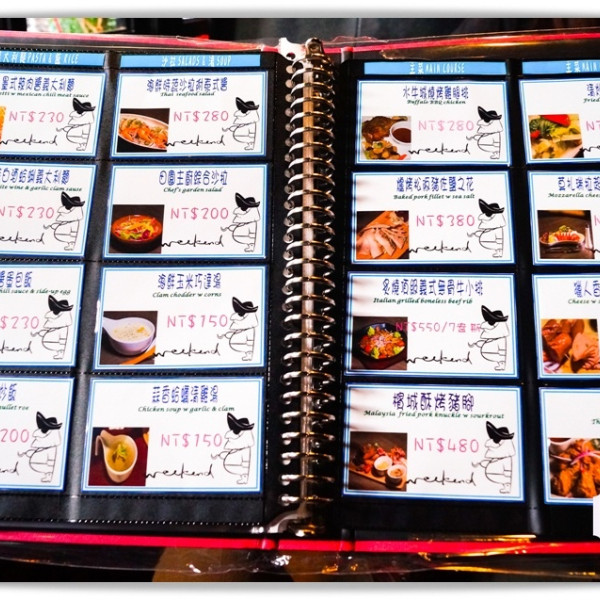 PASTA & 飯 RICE
沙拉 SALADS & 湯 SOUP
主菜 MAIN COURSE
主菜 MAIN COURSE
墨式辣肉醬義大利麵
w mexican chili meat sauce
NT$230
白酒蛤蜊義大利麵
wine & garlic clam sauce
NT$230
weekend
蛋包飯
sauce & side-up egg
$230
炒飯
mullet roe
200
weekend
海鮮時蔬沙拉附泰式醬
Thai seafood salad
NT$280
weekend
田園主廚綜合沙拉
Chef's garden salad
NT$200
weekend
海鮮玉米巧達湯
Clam chodder w corns
NT$150
weekend
蒜香蛤蠣清雞湯
Chicken soup w garlic & clam
NT$150
weekend
水牛城燒烤雞
Buffalo BBQ chicken
NT$280
weekend
爐烤松阪豬佐鹽之花
Baked pork fillet w sea salt
NT$380
weekend
炙燒酒釀義式無骨牛小排
Italian grilled boneless beef rib
NT$550/7盎斯
weekend
檳城酥烤豬腳
Malaysia fried pork knuckle w sourkrout
NT$480
weekend
Fried
莫札瑞拉起
Mozzarella chees
獵人
Cheese w
Th